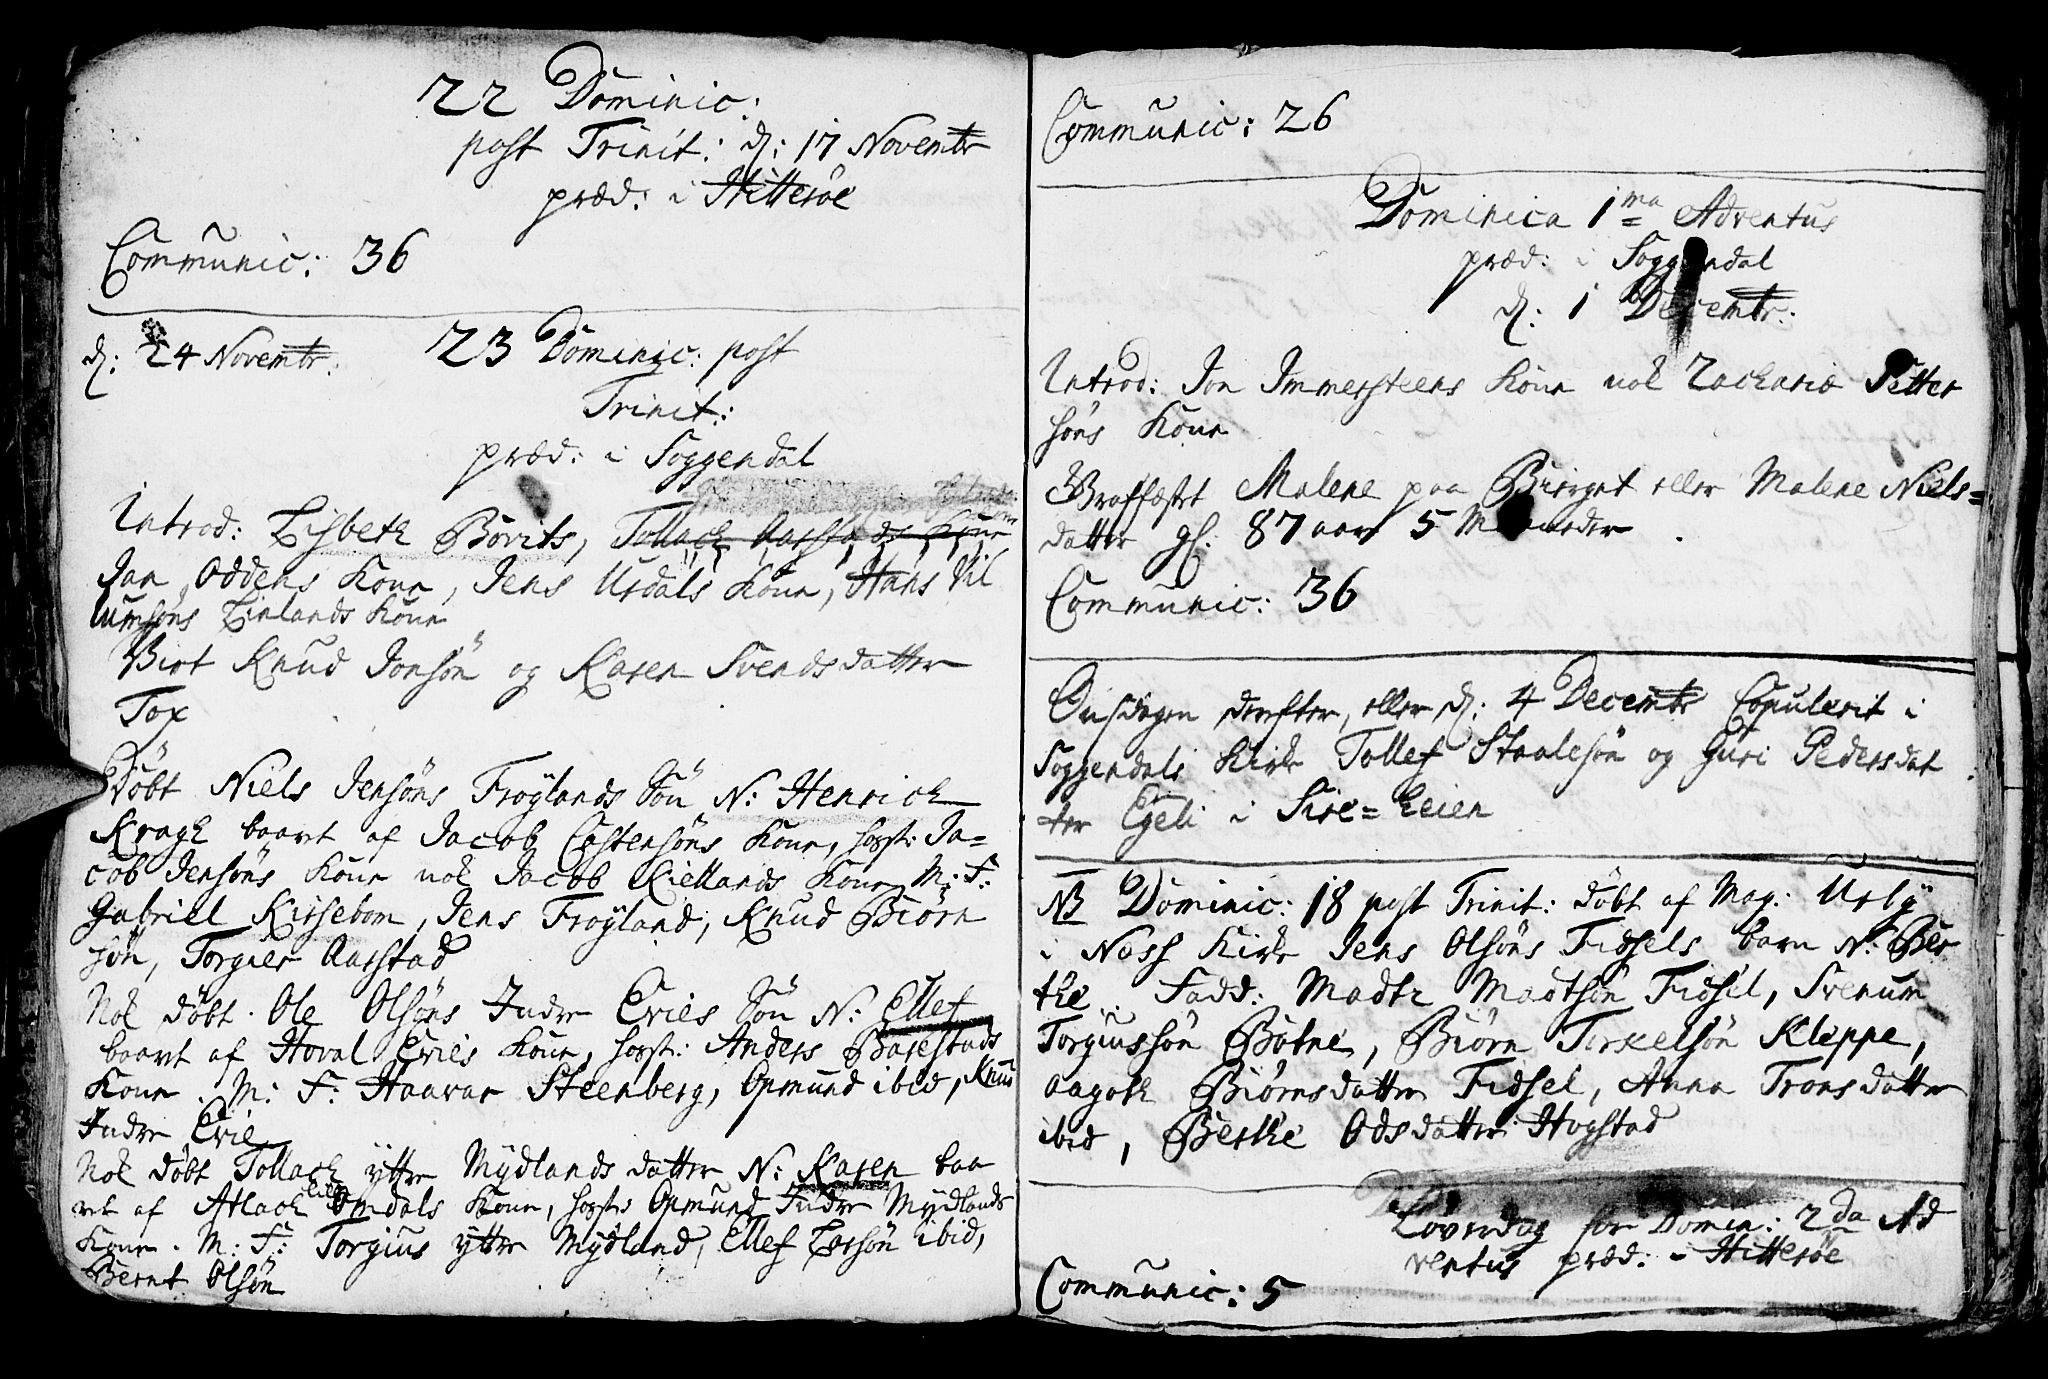 22 Dominic:
post Trinit: d: 17 Novembr
præd: i Hitterøe
Communic: 36
d: 24 Novembr: 23 Dominic: post
Trinit:
præd: i Soggendal
Introd: Lisbeth Børvits, Tollach Aarstads Kone
Jan Oddens Kone, Jens Urdals Kone, Hans Vil
lumsøns Linlands Kone
Viet Knud Jonsøn og Karen Svendsdatter
Tox
Døbt Niels Jensøns Frøylands Søn N: Henrich
Kragh baaret af Jacob Castensøns Kone, hosst: Ja=
cob Jensøns Kone nok Jacob Kiellands Kone M: F:
Gabriel Kirsebom, Jens Frøyland, Knud Biørn
søn, Torgier Aarstad
Nok døbt Ole Olsøns Indre Eries Søn N: Ellef
baaret af Hoval Eries Kone, hosst: Anders Barestads
Kone. M: F: Haavar Steenberg, Omund ibid, Knud
Indre Erie
Nok døbt Tollach yttre Mydlands datter N: Karen baa
ret af Atlach lille Omdals Kone, hosst: Omund Indre Mydlands
Kone. M: F: Torgius yttre Mydland, Ellef Larsøn ibid,
Bernt Olsøn
Communic: 26
Dominica 1ma Adventus
præd: i Soggendal
d: 1 Decembr:
Introd: Jon Immersteens Kone nok Zachariæ Petter
søns Kone
Graffæstet Malene paa Bierget eller Malene Niels=
datter gl: 87 aar 5 Maaneder
Communic: 36
Onsdagen derefter, eller d: 4 Decembr Copulerit i
Soggendals Kirke Tollef Staalesøn og Guri Pedersdat
ter Egeli i Sire=Leien
NB Dominic: 18 post Trinit: døbt af Mag: Urby
i Ness Kirke Jens Olsøns Fidsels barn N: Ber
the. Fadd: Madtz Madtsøn Fidsel, Svenum
Torgiussøn Botne, Biørn Torkelsøn Kleppe,
Aagoth Biørnsdatter Fidsel, Anna Tronsdatter
ibid, Berthe Odsdatter Hogstad
Løverdag for Domin: 2da Ad
ventus præd: i Hitterøe
Communic: 5